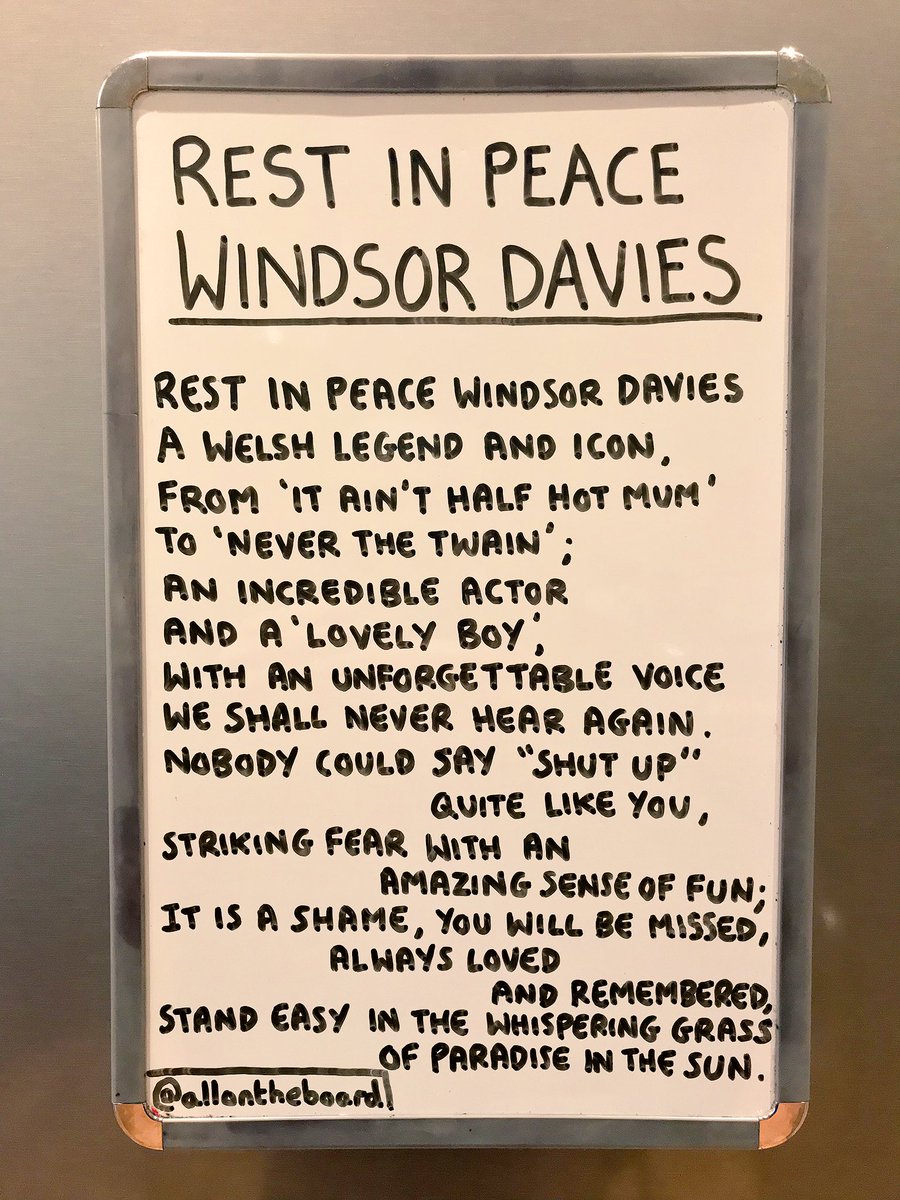 REST IN PEACE
WINDSOR DAVIES
REST IN PEACE WINDSOR DAVIES
A WELSH LEGEND AND ICON,
FROM 'IT AIN'T HALF HOT MUM'
TO 'NEVER THE TWAIN';
AN INCREDIBLE ACTOR
AND A 'LOVELY BOY',
WITH AN UNFORGETTABLE VOICE
WE SHALL NEVER HEAR AGAIN.
NOBODY COULD SAY "SHUT UP"
QUITE LIKE YOU,
STRIKING FEAR WITH AN
AMAZING SENSE OF FUN;
IT IS A SHAME, YOU WILL BE MISSED,
ALWAYS LOVED
AND REMEMBERED,
STAND EASY IN THE WHISPERING GRASS
OF PARADISE IN THE SUN.
@allontheboard